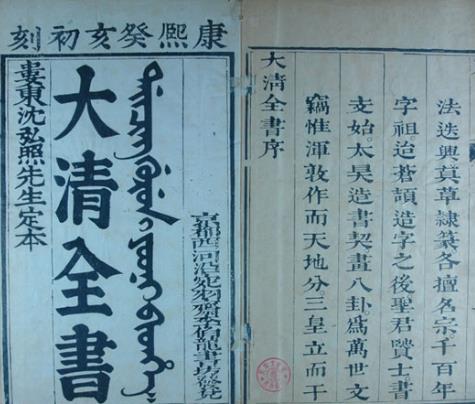 康熙癸亥初刻
婁東沈弘照先生定本
大清全書
ᡩᠠᡳᠴᡳᠩ ᡤᡠᡵᡠᠨ ᡳ ᠶᠣᠣᠨᡳ ᠪᡳᡨᡥᡝ
京都西河沿宛羽齋李伯龍書房發兌
大清全書序
竊惟渾敦作而天地分三皇立而干
支始。太昊造書契畫八卦爲萬世文
字祖。迨蒼頡造字之後聖君賢士書
法迭興眞草隸篆各擅名宗。千百年